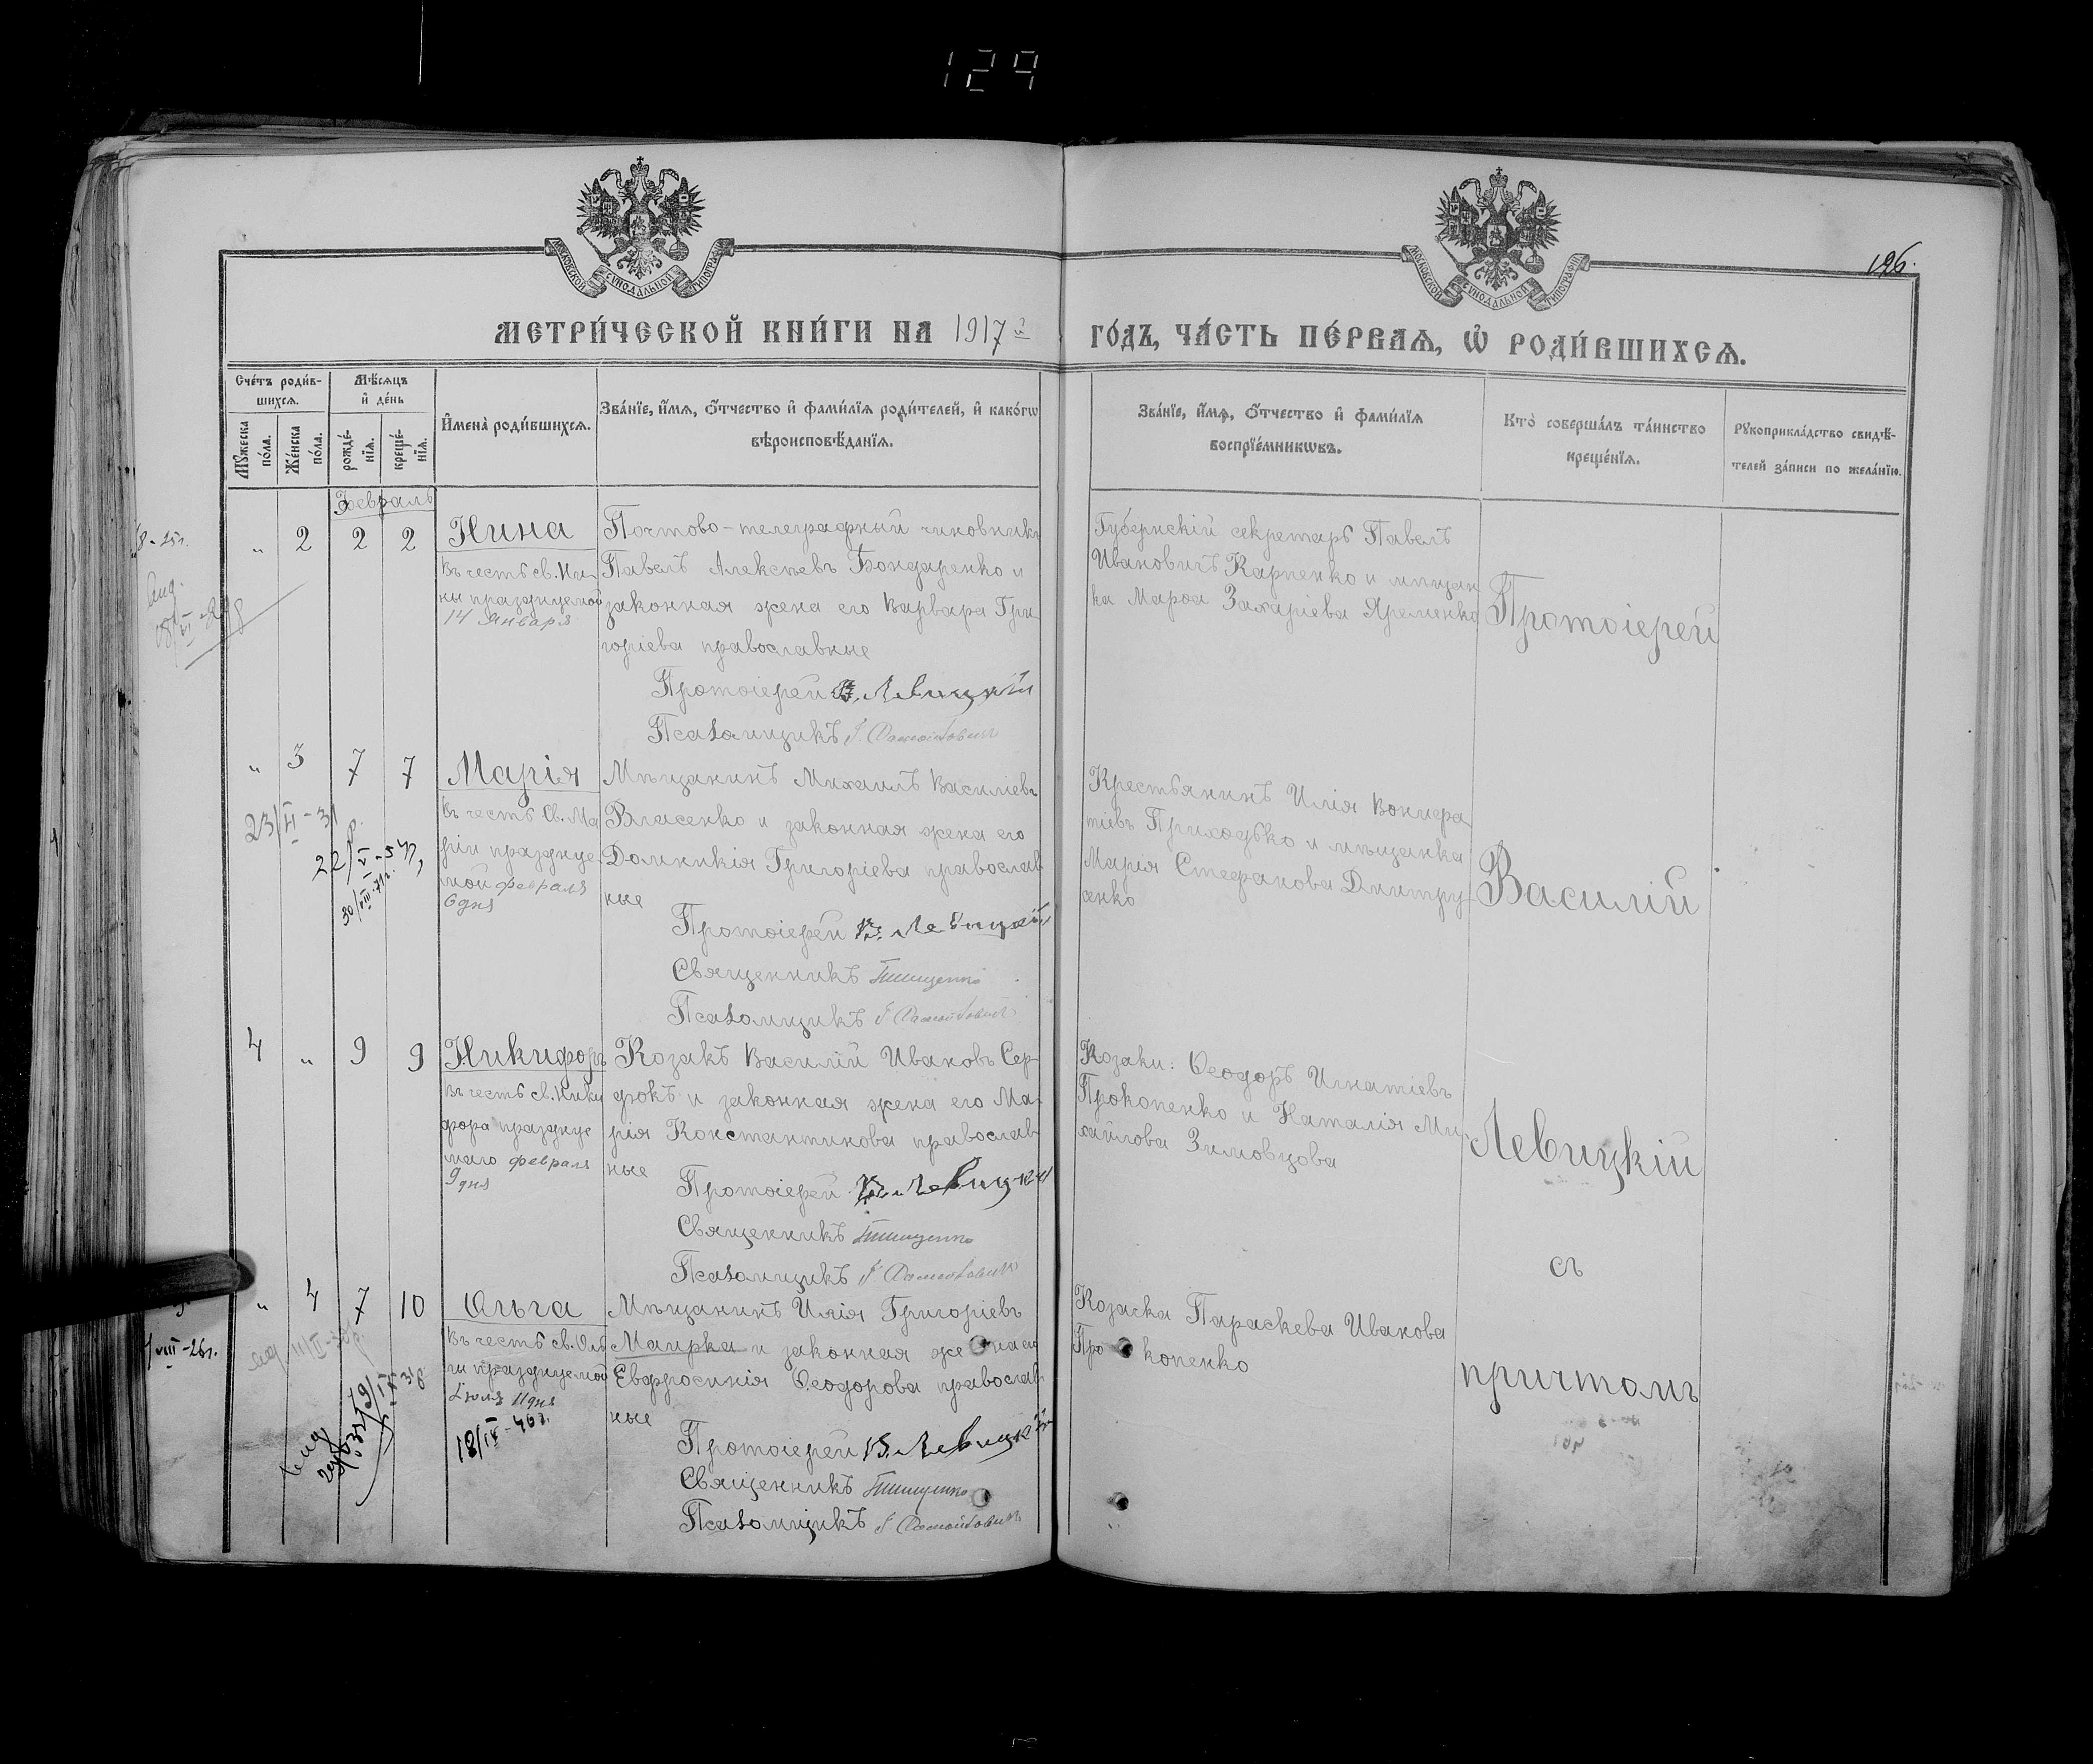 129
МОСКОВСКОЙ СѴНОДАЛЬНОЙ ТИПОГРАФІИ
МОСКОВСКОЙ СѴНОДАЛЬНОЙ ТИПОГРАФІИ
196.
МЕТРИ́ЧЕСКОЙ КНИ́ГИ НА 1917й ГО́ДЪ, ЧА́СТЬ ПЕ́РВАѦ, Ѽ РОДИ́ВШИХСѦ.
Сче́тъ роди́в-
шихсѧ.
Мꙋ́жеска по́ла.
Же́нска по́ла.
Мѣ́сѧцъ
и҆ де́нь
рожде́-
нїѧ.
креще́-
нїѧ.
И҆мена̀ роди́вшихсѧ.
Зва́нїе, и҆́мѧ, ѻ҆́тчество и҆ фами́лїѧ роди́телей, и҆ како́гѡ
вѣроисповѣ́данїѧ.
Зва́нїе, и҆́мѧ, ѻ҆́тчество и҆ фами́лїѧ
воспрїе́мникѡвъ.
Кто̀ соверша́лъ та́инство
креще́нїѧ.
Рꙋкоприкла́дство свидѣ́-
телей за́писи по жела́нїю.
Февраль
„ 2 2 2
Нина
Въ честь св. Ни-
ны празднуемой
14 Января
Почтово-телеграфный чиновникъ
Павелъ Алексѣевъ Бондаренко и
законная жена его Варвара Гри
горіева православные
Протоіерей В. Левицкій
Псаломщикъ
Губернскій секретарь Павелъ
Ивановичъ Карпенко и мѣщан
ка Марѳа Захаріева Яременко
Протоіерей
„ 3 7 7
23/VI-31
Марія
Въ честь Св. Ма
ріи праздуе-
мой февраля
6 дня
Мѣщанинъ Михаилъ Василіевъ
Власенко и законная жена его
Домникія Григоріева православ
ные
Протоіерей В. Левицкій
Священникъ Тимщенко
Псаломщикъ
Крестьянинъ Илія Вонифа
тіевъ Приходько и мѣщанка
Марія Стефанова Дмитру-
сенко
Василій
4 „ 9 9
Никифоръ
Въ честь св. Ники
фора праздуе
маго февраля
9 дня
Козакъ Василій Ивановъ Сер-
дюкъ и законная жена его Ма-
рія Константинова православ-
ные
Протоіерей В. Левицкій
Священникъ Тимщенко
Псаломщикъ
Козаки: Ѳеодоръ Игнатіевъ
Прокопенко и Наталія Ми
хайлова Зимовцова
Левицкій
съ
„ 4 7 10
Ольга
Въ честь св. Оль
ги празднуемой
Іюля 11 дня
18/IV-46г.
Мѣщанинъ Илія Григоріевъ
Маирка и законная жена его
Евфросинія Ѳеодорова православ
ные
Протоіерей В. Левицкій
Священникъ Тимщенко
Псаломщикъ
Козачка Параскева Иванова
Прокопенко
причтомъ